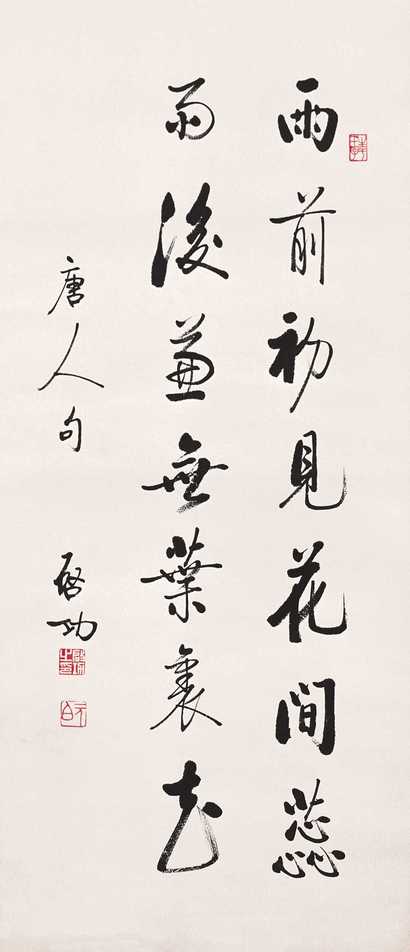 雨前初見花間蕊
雨後兼無葉裏花
唐人句
啟功